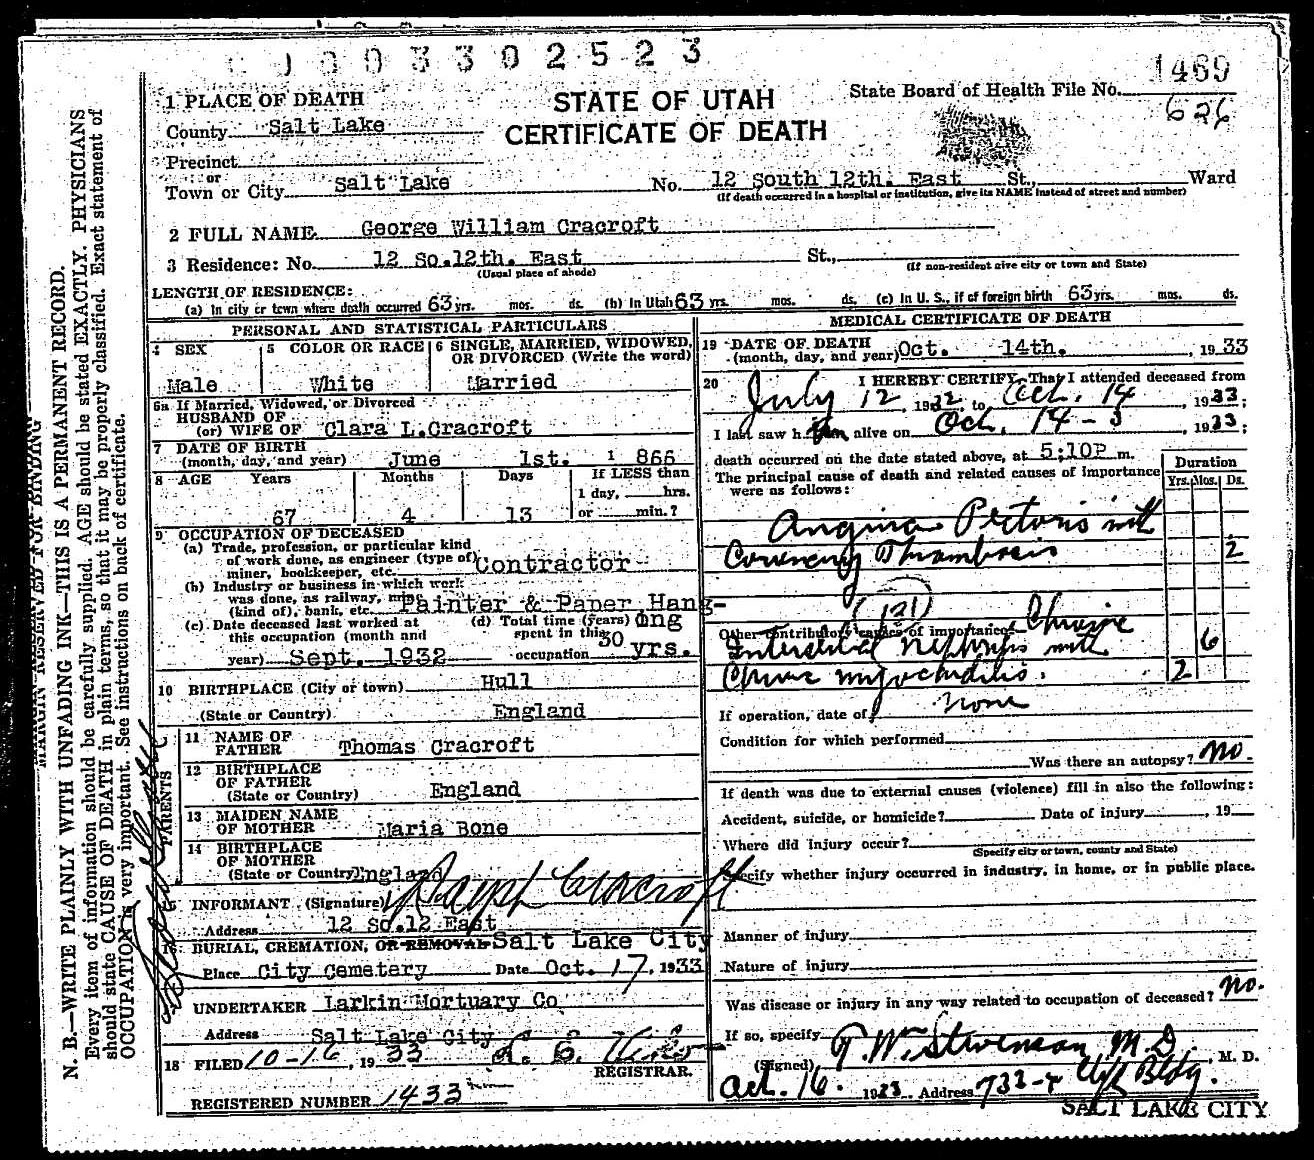 0003302523
1469
1 PLACE OF DEATH
STATE OF UTAH
State Board of Health File No.
County Salt Lake
CERTIFICATE OF DEATH
626
Precinct
or
Town or City Salt Lake No. 12 South 12th. East St., Ward
(If death occurred in a hospital or institution, give its NAME instead of street and number)
2 FULL NAME George William Cracroft
3 Residence: No. 12 So.12th. East St.,
(Usual place of abode) (If non-resident give city or town and State)
LENGTH OF RESIDENCE:
(a) In city or town where death occurred 63 yrs. mos. ds. (b) In Utah 63 yrs. mos. ds. (c) In U. S., if of foreign birth 63 yrs. mos. ds.
PERSONAL AND STATISTICAL PARTICULARS
4 SEX
Male
5 COLOR OR RACE
White
6 SINGLE, MARRIED, WIDOWED, OR DIVORCED (Write the word)
Married
6a If Married, Widowed, or Divorced
HUSBAND OF
(or) WIFE OF Clara L.Cracroft
7 DATE OF BIRTH
(month, day, and year) June 1st. 1866
8 AGE Years Months Days If LESS than
1 day, hrs.
67 4 13 or min.?
9 OCCUPATION OF DECEASED
(a) Trade, profession, or particular kind
of work done, as engineer (type of) Contractor
miner, bookkeeper, etc.
(b) Industry or business in which work
was done, as railway, mine
(kind of), bank, etc. Painter & Paper Hang-
ing
(c) Date deceased last worked at
this occupation (month and
year) Sept. 1932
(d) Total time (years)
spent in this
occupation 30 yrs.
10 BIRTHPLACE (City or town) Hull
(State or Country) England
PARENTS
11 NAME OF
FATHER Thomas Cracroft
12 BIRTHPLACE
OF FATHER
(State or Country) England
13 MAIDEN NAME
OF MOTHER Maria Bone
14 BIRTHPLACE
OF MOTHER
(State or Country) England
15 INFORMANT (Signature) Ralph Cracroft
Address 12 So.12 East
16 BURIAL, CREMATION, OR REMOVAL Salt Lake City
Place City Cemetery Date Oct. 17, 1933
UNDERTAKER Larkin Mortuary Co
Address Salt Lake City
18 FILED 10-16, 1933
REGISTRAR.
REGISTERED NUMBER 1433
MEDICAL CERTIFICATE OF DEATH
19 DATE OF DEATH
(month, day, and year) Oct. 14th. , 1933
20 I HEREBY CERTIFY, That I attended deceased from
July 12, 1932 to Oct. 14, 1933;
I last saw him alive on Oct. 14-3, 1933;
death occurred on the date stated above, at 5:10P m.
The principal cause of death and related causes of importance
were as follows:
Duration
Yrs. Mos. Ds.
Angina Pectoris with
Coronary Thrombosis 2
(121)
Other contributory causes of importance: Chronic
Interstitial Nephritis with 6
Chronic myocarditis. 2
If operation, date of none
Condition for which performed
Was there an autopsy? no.
If death was due to external causes (violence) fill in also the following:
Accident, suicide, or homicide? Date of injury , 19
Where did injury occur?
(Specify city or town, county and State)
Specify whether injury occurred in industry, in home, or in public place.
Manner of injury
Nature of injury
Was disease or injury in any way related to occupation of deceased? no.
If so, specify
(Signed) T. W. Stevenson M.D. , M. D.
Oct. 16. 1933. Address 732-4 Clift Bldg.
SALT LAKE CITY
MARGIN RESERVED FOR BINDING
N. B.—WRITE PLAINLY WITH UNFADING INK—THIS IS A PERMANENT RECORD.
Every item of information should be carefully supplied. AGE should be stated EXACTLY. PHYSICIANS
should state CAUSE OF DEATH in plain terms, so that it may be properly classified. Exact statement of
OCCUPATION is very important. See instructions on back of certificate.